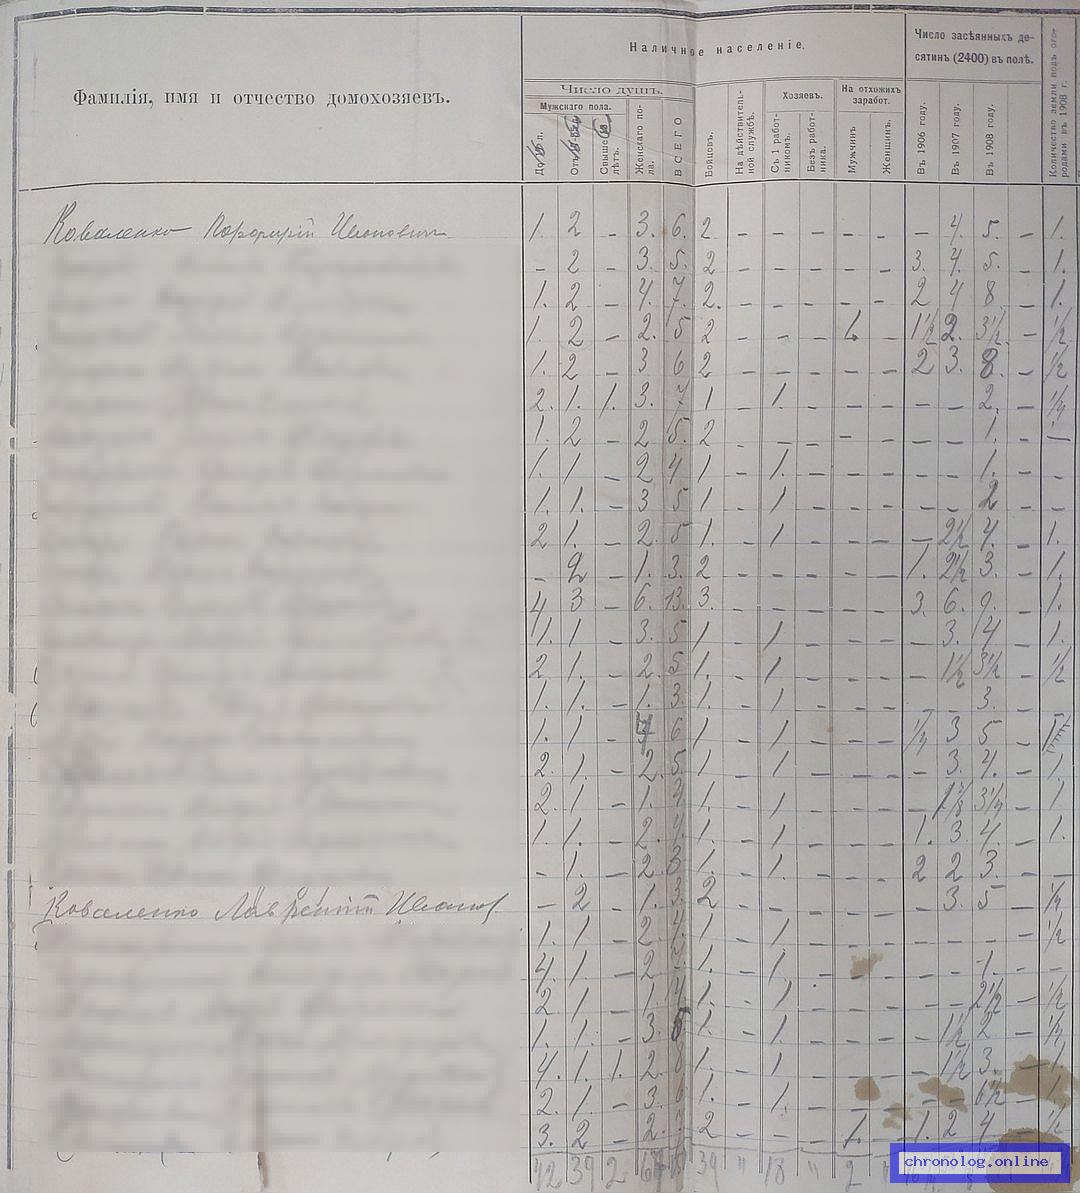 Фамилія, имя и отчество домохозяевъ.
Наличное населеніе.
Число душъ.
Мужскаго пола.
До 15 л.
Свыше 60 лѣтъ.
Женскаго пола.
ВСЕГО
Бойцовъ.
На дѣйствительной службѣ.
Хозяевъ.
Съ 1 работникомъ.
Безъ работника.
На отхожихъ заработ.
Мужчинъ
Женщинъ.
Число засѣянныхъ десятинъ (2400) въ полѣ.
Въ 1906 году.
Въ 1907 году.
Въ 1908 году.
Количество земли подъ огородами въ 1908 г.
Коваленко Порфирій 1. 2 – 3. 6. 2 – – – – – – – 4. 5. – 1.
– 2 – 3. 5. 2 – – – – – – 3. 4. 5. – 1.
1. 2 – 4. 7. 2. – – – – – 2 4 8 – 1.
1. 2 – 2. 5 2 – – – – 1½ 2. 3½ – ½
1. 2 – 3 6 2 – – – – – – 2 3. 8. – ½
2. 1. 1. 3. 7 1 – 1. – – – – – 2. – ¼
1. 2 – 2 5. 2 – – – – – – – – 1. – –
1. 1 – 2 4 1 – 1. – – – – – 1. – –
1. 1. – 3 5 1 – 1 – – – – – 2 – –
2 1. – 2. 5 1. – 1 – – – – 2½ 4. – 1.
– 2 – 1. 3. 2 – – – – – – 1. 2½ 3. – 1.
4 3 – 6. 13. 3. – – – – – – 3. 6. 9. – 1.
1. 1 – 3. 5 1. – 1 – – – – 3. 4 – 1.
2 1. – 2 5 1. – 1 – – – – 1½ 3½ – ½
1. 1. – 1. 3. 1. – 1 – – – – – 3. – –
1. 1 – 6 1 – 1 – – – ¼ 3 5 –
2. 1. – 2. 5. 1. – 1 – – – – 3. 4. – 1.
2. 1 – 1. 4 1. – 1 – – – – 3¼ – 1
1. 1. – 2. 4. 1. – 1 – – – 1. 3. 4. – 1.
– 1. – 2 3 1. – 1. – – – 2 2 3. – –
Коваленко Лаврентій Иванов. – 2 – 1. 3. 2 – – – – – – – 3. 5 – ¼
1. 1 – 2 4. 1 – 1 – – – – – – – ½
4. 1 – 2 7. 1. – 1. – – – – – 1. – –
2 1 – 1. 4 1. – 1 – – – – – 2½ – ½
1. 1. – 3. 5 1. – 1. – – – – 1½ 2 – ¼
4. 1. 1. 2 8 1. – 1 – – – – 1½ 3. – 1.
2. 1. – 3. 6 1. – 1. – – – – – 6½ – 1.
3. 2 – 2. 7 2 – – – 1. – 1. 2 4 – ½
42 39 2 39 " 18 " 2 "
chronolog.online